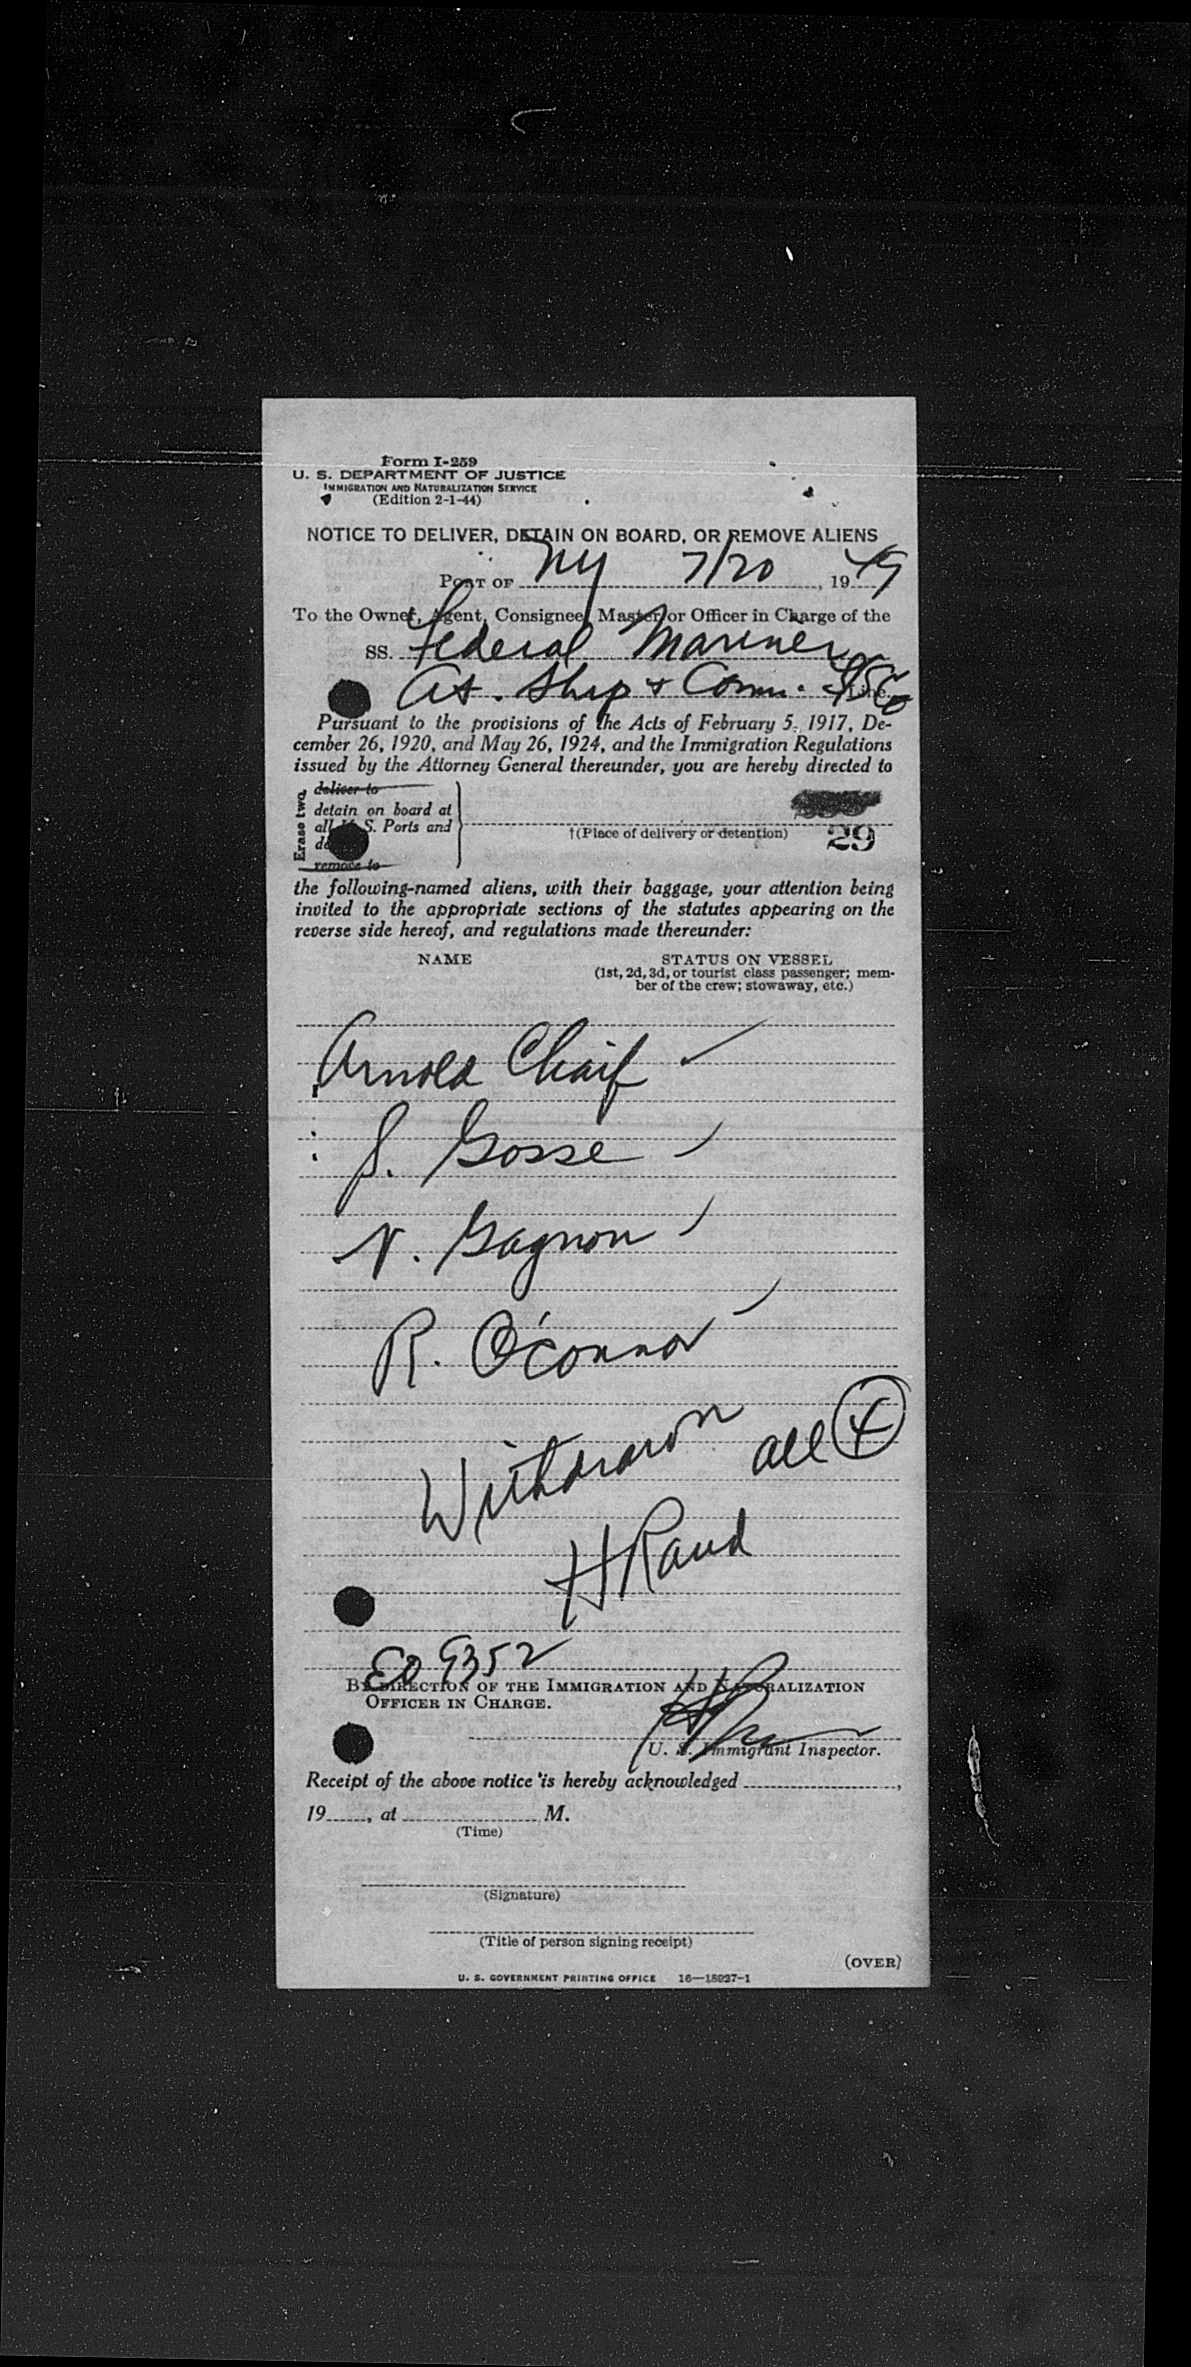 Form I-259
U. S. DEPARTMENT OF JUSTICE
IMMIGRATION AND NATURALIZATION SERVICE
(Edition 2-1-44)
NOTICE TO DELIVER, DETAIN ON BOARD, OR REMOVE ALIENS
PORT OF NY 7/20, 1949
To the Owner, Agent, Consignee, Master, or Officer in Charge of the
SS. Federal Mariner
At. Ship & Comm.
Pursuant to the provisions of the Acts of February 5, 1917, De-
cember 26, 1920, and May 26, 1924, and the Immigration Regulations
issued by the Attorney General thereunder, you are hereby directed to
Erase two.
deliver to
detain on board at
all U. S. Ports and
remove to
†(Place of delivery or detention)
29
the following-named aliens, with their baggage, your attention being
invited to the appropriate sections of the statutes appearing on the
reverse side hereof, and regulations made thereunder:
NAME STATUS ON VESSEL
(1st, 2d, 3d, or tourist class passenger; mem-
ber of the crew; stowaway, etc.)
Arnold Chaif
S. Gosse
N. Gagnon
R. O'Connor
Withdrawn all 4
H Rand
EO 9352
BY DIRECTION OF THE IMMIGRATION AND NATURALIZATION
OFFICER IN CHARGE.
U. S. Immigrant Inspector.
Receipt of the above notice is hereby acknowledged ,
19 , at M.
(Time)
(Signature)
(Title of person signing receipt)
(OVER)
U. S. GOVERNMENT PRINTING OFFICE 16—18927-1